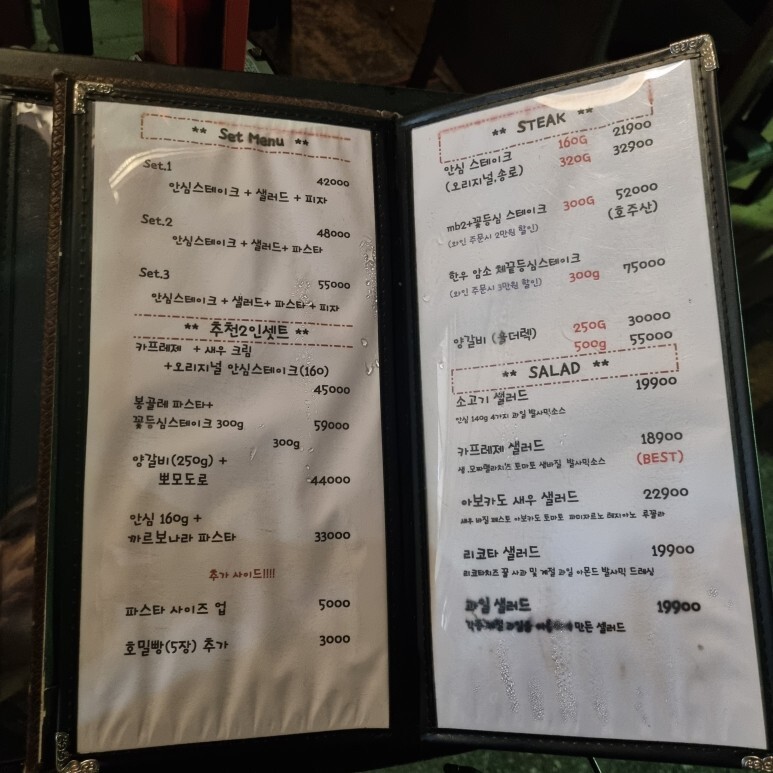 ** Set Menu **
Set.1
42000
안심스테이크 + 샐러드 + 피자
Set.2
48000
안심스테이크 + 샐러드+ 파스타
Set.3
55000
안심스테이크 + 샐러드+ 파스타 + 피자
** 추천2인셋트 **
카프레제 + 새우 크림
+오리지널 안심스테이크(160)
45000
봉골레 파스타+
꽃등심스테이크 300g 59000
300g
양갈비(250g) +
뽀모도로 44000
안심 160g +
까르보나라 파스타 33000
추가 사이드!!!!
파스타 사이즈 업 5000
호밀빵(5장) 추가 3000
** STEAK **
안심 스테이크 160G 21900
(오리지널,송로) 320G 32900
mb2+꽃등심 스테이크 300G 52000
(와인 주문시 2만원 할인) (호주산)
한우 암소 채끝등심스테이크
(와인 주문시 3만원 할인) 300g 75000
양갈비 (숄더렉) 250G 30000
500g 55000
** SALAD **
소고기 샐러드 19900
안심 140g 4가지 과일 발사믹소스
카프레제 샐러드 18900
생.모짜렐라치즈 토마토 생바질 발사믹소스 (BEST)
아보카도 새우 샐러드 22900
새우 바질 페스토 아보카도 토마토 파미자르노 레지아노 루꼴라
리코타 샐러드 19900
리코타치즈 꿀 사과 및 계절 과일 아몬드 발사믹 드레싱
과일 샐러드 19900
만든 샐러드